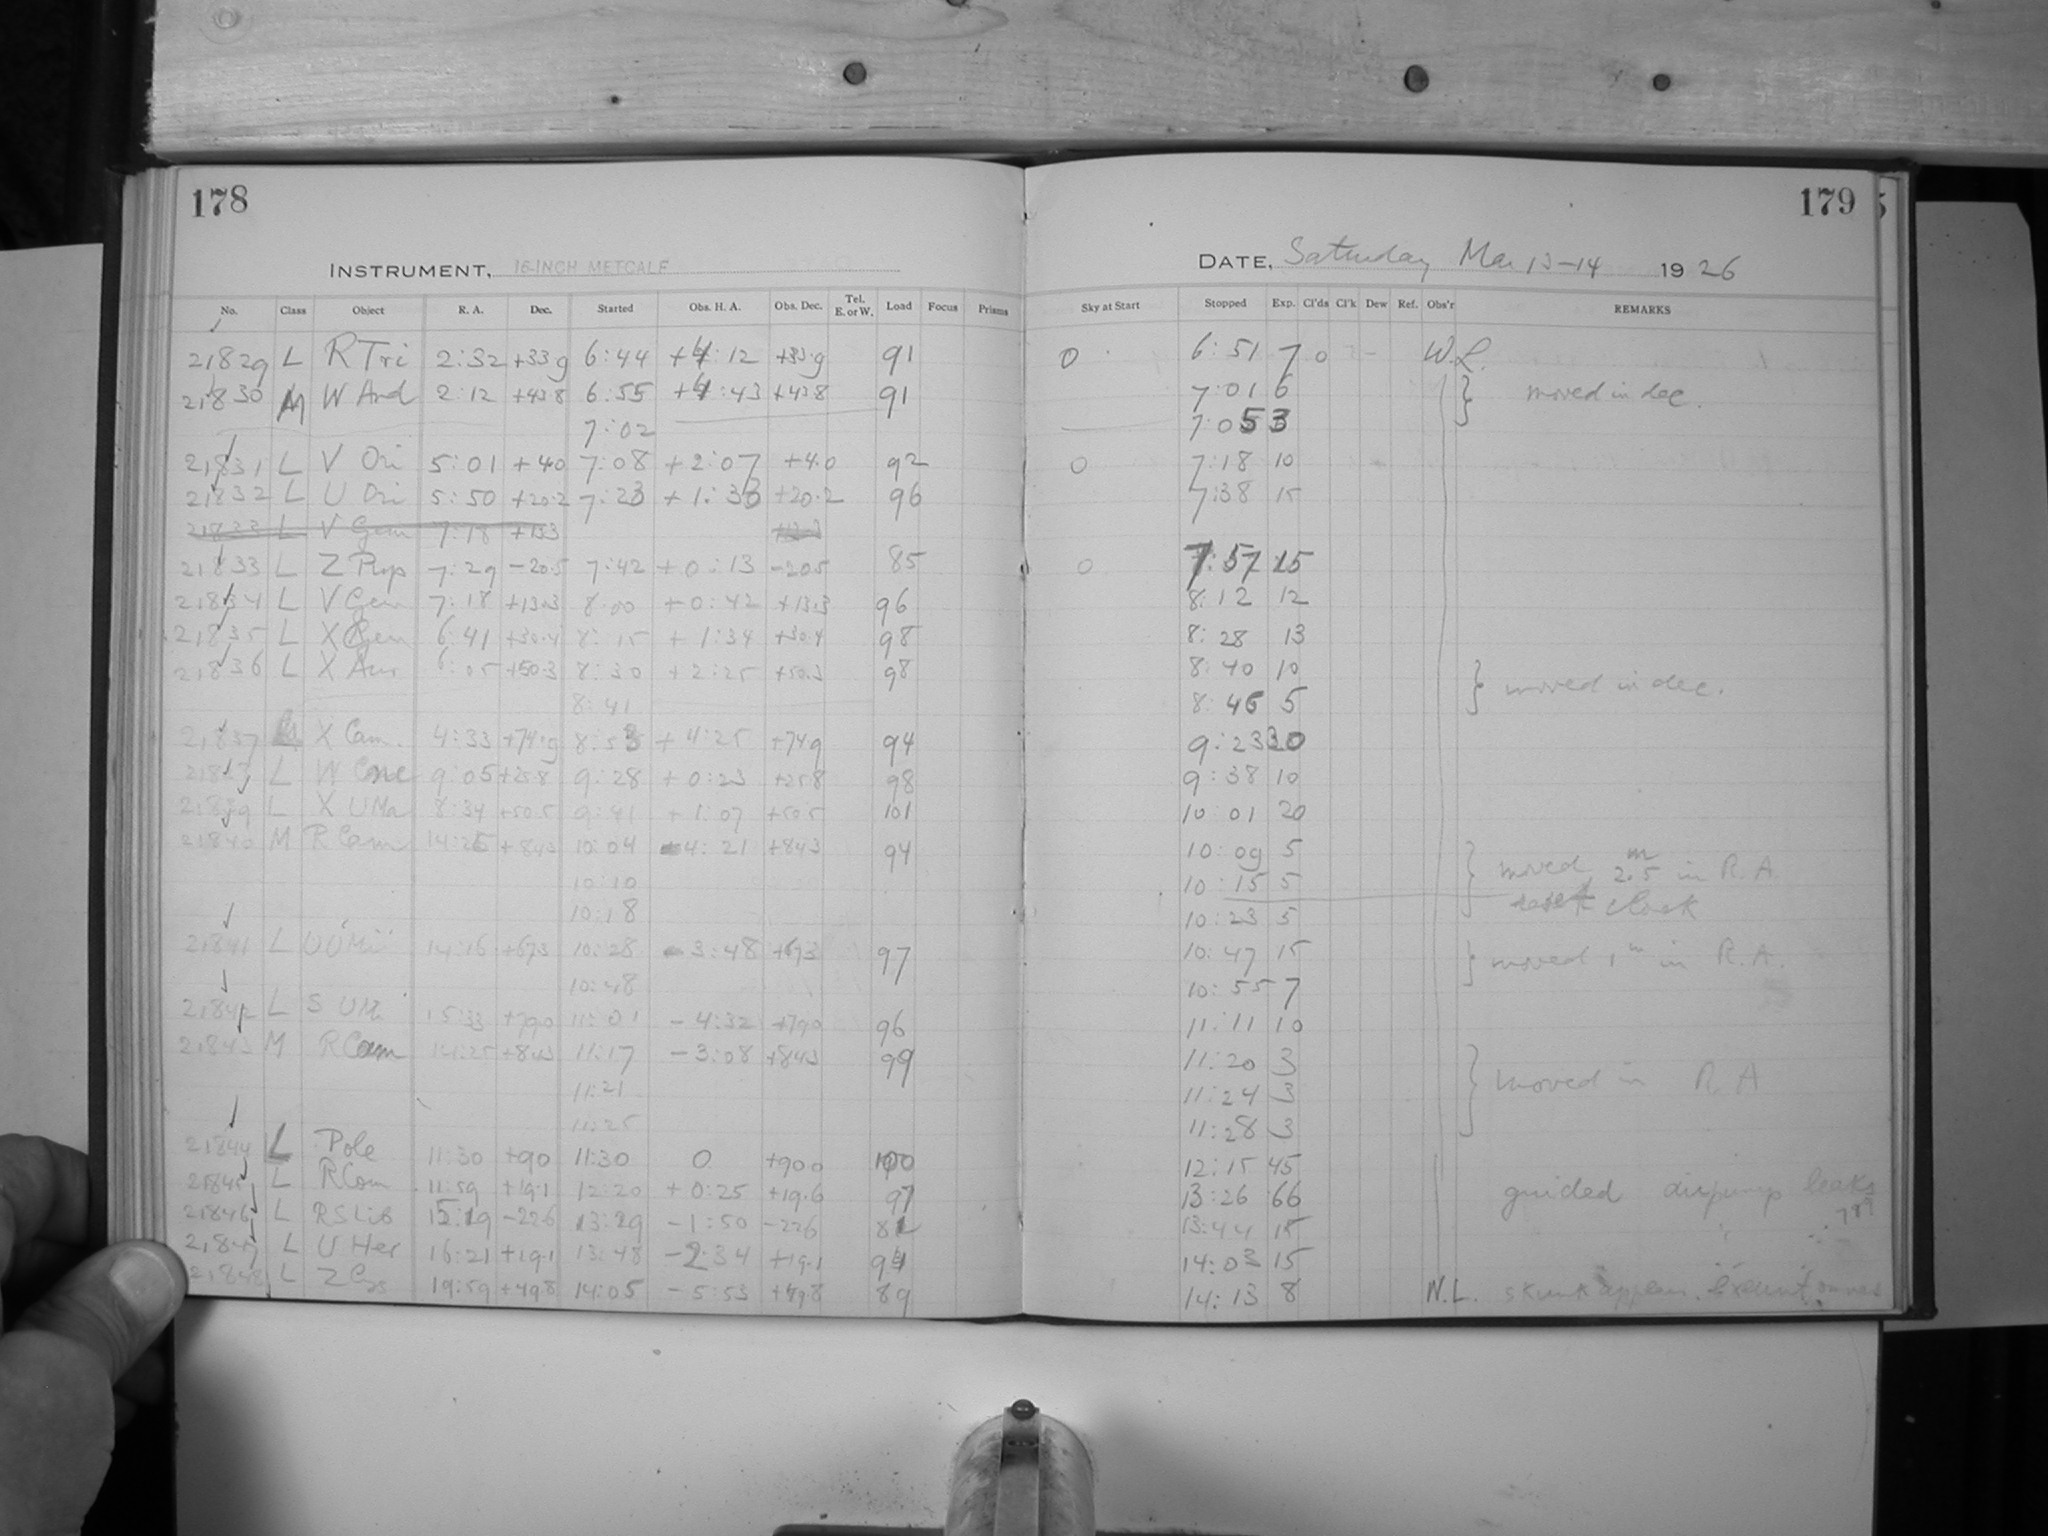 178
INSTRUMENT, 16-INCH METCALF
No. Class Object R. A. Dec. Started Obs. H. A. Obs. Dec. Tel. E. or W. Load Focus Prisms
21829 L R Tri 2:32 +33.9 6:44 +4:12 +33.9 91
21830 M W And 2:12 +43.8 6:55 +4:43 +43.8 91
7:02
21831 L V Ori 5:01 +4.0 7:08 +2:07 +4.0 92
21832 L U Ori 5:50 +20.2 7:23 +1:33 +20.2 96
21833 L V Gem 7:18 +13.3
21833 L Z Pup 7:29 -20.5 7:42 +0:13 -20.5 85
21834 L V Gem 7:18 +13.3 8:00 +0:42 +13.3 96
21835 L X Gem 6:41 +30.4 8:15 +1:34 +30.4 98
21836 L X Aur 6:05 +50.3 8:30 +2:25 +50.3 98
8:41
21837 X Cam. 4:33 +74.9 8:53 +4:25 +74.9 94
L W Cnc 9:05 +25.8 9:28 +0:23 +25.8 98
21839 L X UMa 8:34 +50.5 9:41 +1:07 +50.5 101
21840 M R Cam 14:25 +84.3 10:04 -4:21 +84.3 94
10:10
10:18
21841 L U UMi 14:16 +67.3 10:28 -3:48 +67.3 97
10:48
21842 L S UMi 15:33 +79.0 11:01 -4:32 +79.0 96
21843 M R Cam 14:25 +84.3 11:17 -3:08 +84.3 99
11:21
11:25
21844 L Pole 11:30 +90 11:30 0 +90.0 100
21845 L R Com 11:59 +19.1 12:20 +0:25 +19.6 97
21846 L RS Lib 15:19 -22.6 13:29 -1:50 -22.6
21847 L U Her 16:21 +19.1 13:48 -2:34 +19.1 94
21848 L Z Cyg 19:59 +49.8 14:05 -5:53 +49.8 89
179
DATE, Saturday Mar 13-14 1926
Sky at Start Stopped Exp. Cl'ds Cl'k Dew Ref. Obs'r REMARKS
0 6:51 7 0 W.L.
7:01 6 } moved in dec.
7:05 3
0 7:18 10
7:38 15
0 7:57 15
8:12 12
8:28 13
8:40 10 } moved in dec.
8:46 5
9:23 30
9:38 10
10:01 20
10:09 5 } moved 2.5 m in R.A
10:15 5
clock
10:23 5
10:47 15 } moved 1 m in R.A.
10:55 7
11:11 10
11:20 3
11:24 3 } moved in R A
11:28 3
12:15 45
13:26 66 guided leaks
13:44 15
14:03 15
14:13 8 W.L. skunk appears.